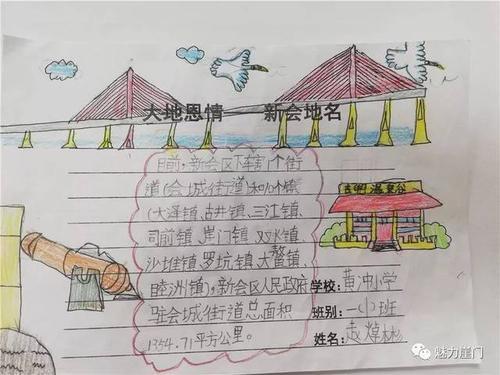 大地恩情——新会地名
目前,新会区下辖1个街
道(会城街道)和10个镇
(大泽镇、古井镇、三江镇、
司前镇、崖门镇、双水镇、
沙堆镇、罗坑镇、大鳌镇、
睦洲镇),新会区人民政府
驻会城街道,总面积
1354.71平方公里。
学校:黄冲小学
班别:一(1)班
姓名:赵焯彬
魅力崖门